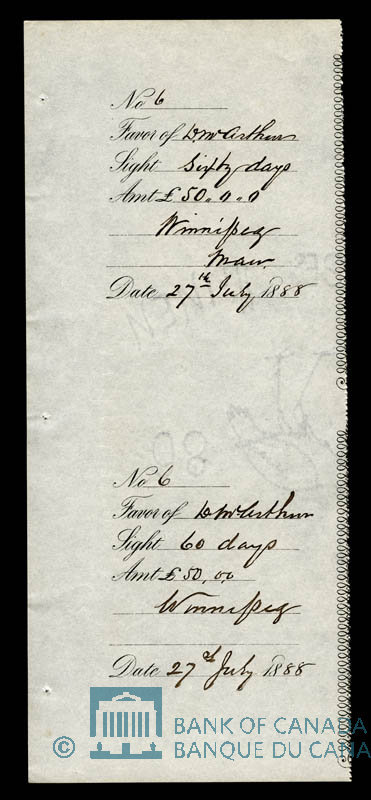 No 6
Favor of D. McArthur
Sight Sixty days
Amt £ 50.0.0
Winnipeg
Man.
Date 27th July 1888
No 6
Favor of D McArthur
Sight 60 days
Amt £ 50.00
Winnipeg
Date 27th July 1888
© BANK OF CANADA
BANQUE DU CANA